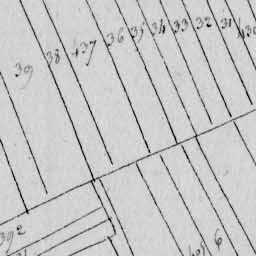 39 38 437 36 35 34 33 32 31 430
392
6